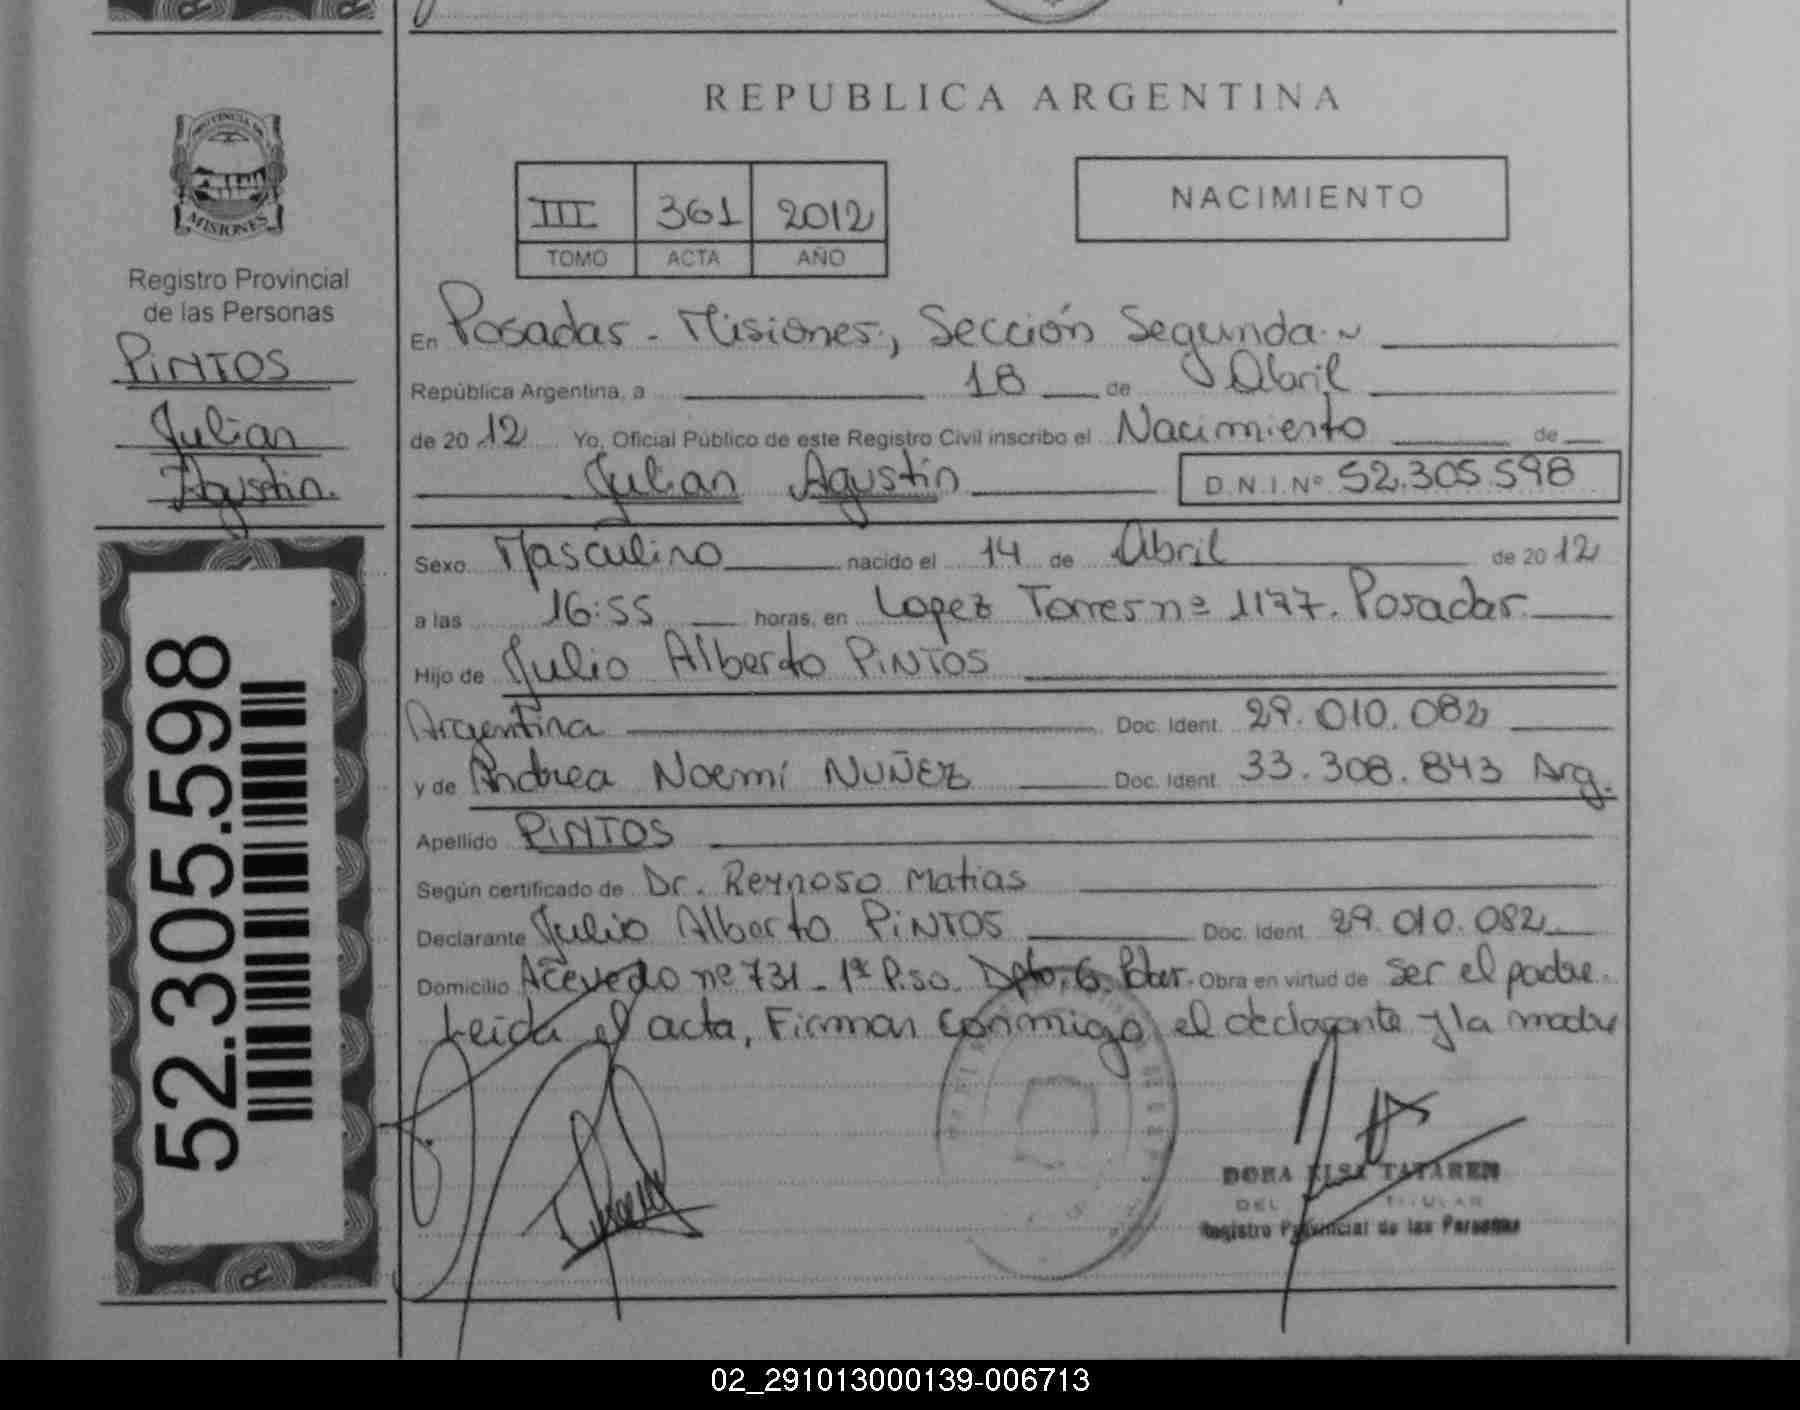 REPUBLICA ARGENTINA
PROVINCIA DE
MISIONES
Registro Provincial
de las Personas
PINTOS
Julian
Agustin.
52.305.598
III 361 2012
TOMO ACTA AÑO
NACIMIENTO
En Posadas - Misiones, Sección Segunda.
República Argentina, a 18 de Abril
de 2012 Yo, Oficial Público de este Registro Civil inscribo el Nacimiento de
Julian Agustín D.N.I.Nº 52.305.598
Sexo Masculino nacido el 14 de Abril de 2012
a las 16:55 horas, en Lopez Torres nº 1177. Posadas.
Hijo de Julio Alberto PINTOS
Argentina Doc. Ident. 29.010.082
y de Andrea Noemí NUÑEZ Doc. Ident. 33.308.843 Arg.
Apellido PINTOS
Según certificado de Dr. Reynoso Matias
Declarante Julio Alberto PINTOS Doc. Ident. 29.010.082
Domicilio Acevedo nº 731 - 1º Piso. Dpto. 6 Obra en virtud de ser el padre.
Leida el acta, Firman conmigo el declarante y la madre
DORA ELSA TATAREN
DEL TITULAR
Registro Provincial de las Personas
02_291013000139-006713